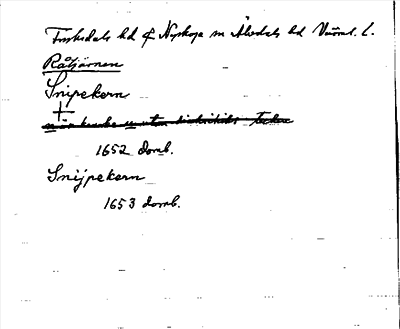 Fryksdals hd f Nyskoga sn Älvdals hd Värml. l.
Råtjärnen
Snipekern
1652 domb.
Snijpekern
1653 domb.